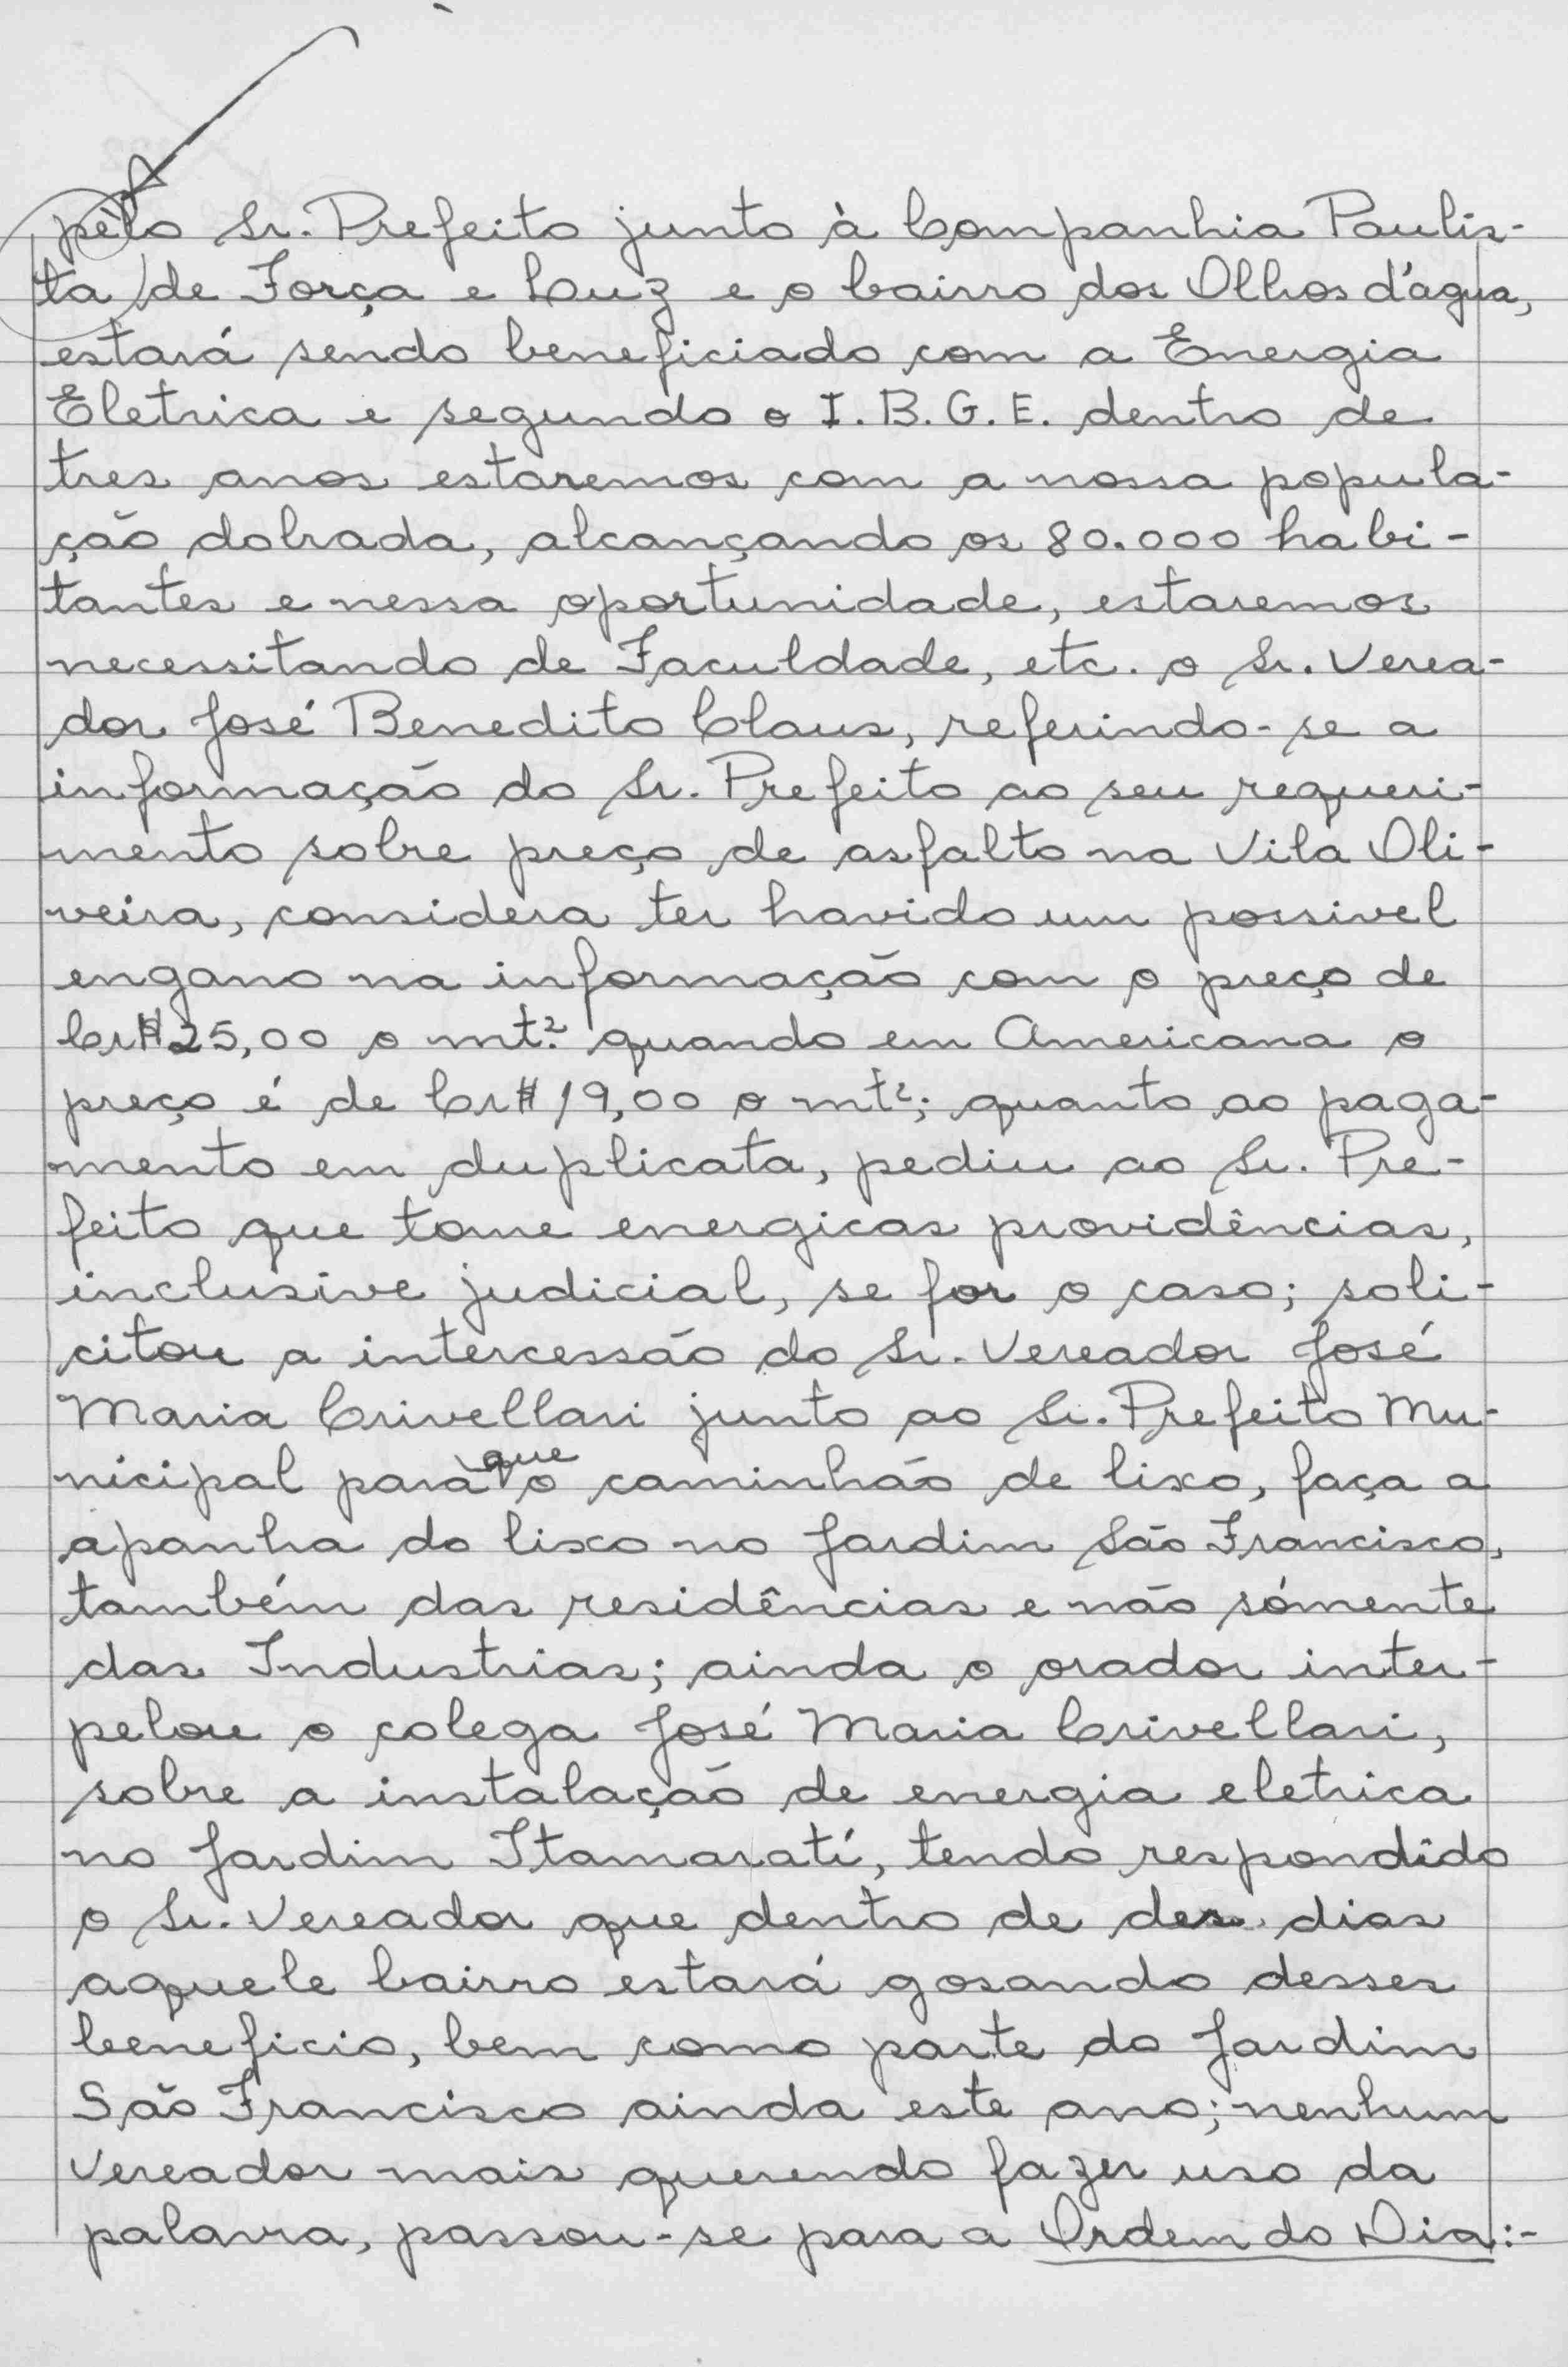 pelo Sr. Prefeito junto à Companhia Paulis-
ta de Força e Luz e o bairro dos Olhos d'água,
estará sendo beneficiado com a Energia
Eletrica e segundo o I.B.G.E. dentro de
tres anos estaremos com a nossa popula-
ção dobrada, alcançando os 80.000 habi-
tantes e nessa oportunidade, estaremos
necessitando de Faculdade, etc. o Sr. Verea-
dor José Benedito Claus, referindo-se a
informação do Sr. Prefeito ao seu requeri-
mento sobre preço de asfalto na Vila Oli-
veira, considera ter havido um possivel
engano na informação com o preço de
Cr$ 25,00 o mt.² quando em Americana o
preço é de Cr$ 19,00 o mt²; quanto ao paga-
mento em duplicata, pediu ao Sr. Pre-
feito que tome energicas providências,
inclusive judicial, se for o caso; soli-
citou a intercessão do Sr. Vereador José
Maria Crivellari junto ao Sr. Prefeito Mu-
nicipal para que o caminhão de lixo, faça a
apanha do lixo no Jardim São Francisco,
também das residências e não sómente
das Industrias; ainda o orador inter-
pelou o colega José Maria Crivellari,
sobre a instalação de energia eletrica
no Jardim Itamaratí, tendo respondido
o Sr. Vereador que dentro de des dias
aquele bairro estará gosando desses
beneficio, bem como parte do Jardim
São Francisco ainda este ano; nenhum
Vereador mais querendo fazer uso da
palavra, passou-se para a Ordem do Dia:-